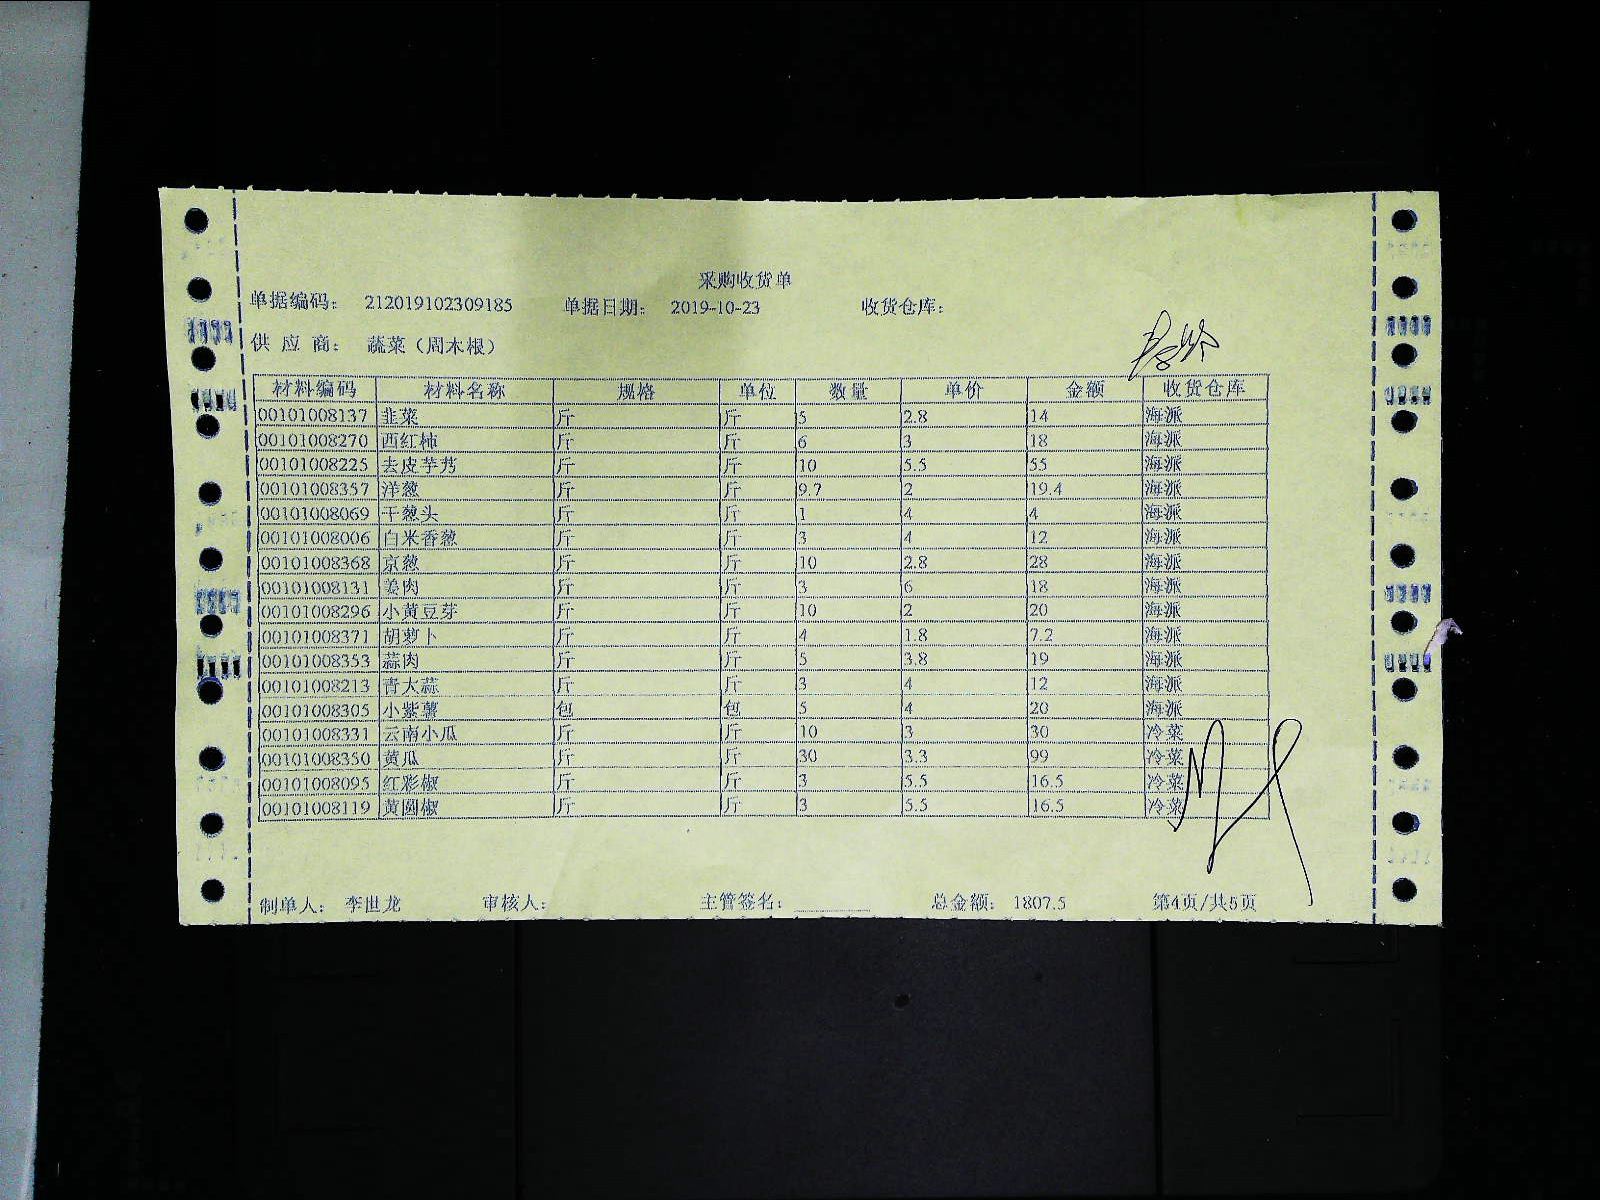 采购收货单
单据编码： 212019102309185 单据日期： 2019-10-23 收货仓库：
供 应 商： 蔬菜（周木根）
材料编码 材料名称 规格 单位 数量 单价 金额 收货仓库
00101008137 韭菜 斤 斤 5 2.8 14 海派
00101008270 西红柿 斤 斤 6 3 18 海派
00101008225 去皮芋艿 斤 斤 10 5.5 55 海派
00101008357 洋葱 斤 斤 9.7 2 19.4 海派
00101008069 干葱头 斤 斤 1 4 4 海派
00101008006 白米香葱 斤 斤 3 4 12 海派
00101008368 京葱 斤 斤 10 2.8 28 海派
00101008131 姜肉 斤 斤 3 6 18 海派
00101008296 小黄豆芽 斤 斤 10 2 20 海派
00101008371 胡萝卜 斤 斤 4 1.8 7.2 海派
00101008353 蒜肉 斤 斤 5 3.8 19 海派
00101008213 青大蒜 斤 斤 3 4 12 海派
00101008305 小紫薯 包 包 5 4 20 海派
00101008331 云南小瓜 斤 斤 10 3 30 冷菜
00101008350 黄瓜 斤 斤 30 3.3 99 冷菜
00101008095 红彩椒 斤 斤 3 5.5 16.5 冷菜
00101008119 黄圆椒 斤 斤 3 5.5 16.5 冷菜
制单人： 李世龙 审核人： 主管签名： 总金额： 1807.5 第4页/共5页